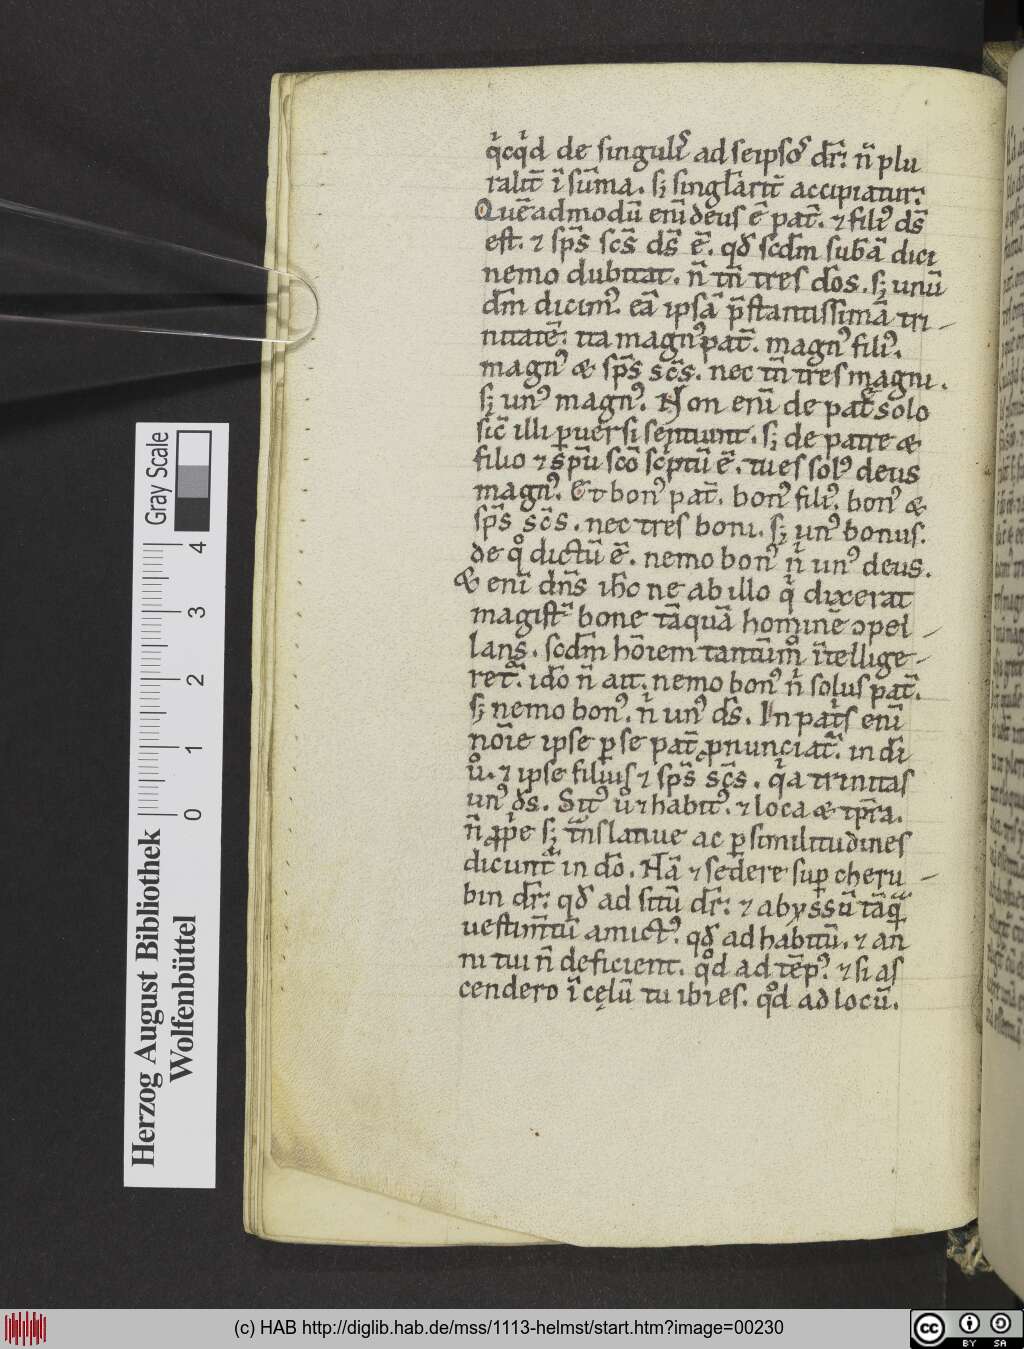 q̇cq̇d de singulꝭ ad seipsoꝰ dr̄: n̄ plu
ralit̄ ī sūma. sꝫ singl̄arit̄ accipiatur.
Quēadmodū enī deus ē pat̄. ⁊ filiꝰ ds̄
est. ⁊ sp̄s sc̄s ds̄ ē. qd̄ scd̄m subā dici
nemo dubitat. n̄ tn̄ tres d̄os. sꝫ unū
dm̄ dicimꝰ. eā ipsā p̄stantissimā tri-
nitatē. ita magnꝰ pat̄. magnꝰ filiꝰ.
magnꝰ & sp̄s sc̄s. nec tn̄ tres magni.
sꝫ unꝰ magnꝰ. Non enī de pat̄ solo
sic̄ illi ꝑuersi sentiunt. sꝫ de patre &
filio ⁊ sp̄u sc̄o sc̄ptū ē. tu es solꝰ deus
magnꝰ. Et bonꝰ pat̄. bonꝰ filiꝰ. bonꝰ &
sp̄s sc̄s. nec tres boni. sꝫ unꝰ bonus.
de qͦ dictū ē. nemo bonꝰ n̄ unꝰ deus.
& enī dn̄s ih̄c ne ab illo q̇ dixerat
magist̄ bone tāquā hominē ꝯpel-
lans. scd̄m hōiem tantūmͦ ītellige-
ret̄. id̄o n̄ ait. nemo bonꝰ n̄ solus pat̄.
sꝫ nemo bonꝰ. n̄ unꝰ ds̄. In pat̄s enī
nōie ipse ꝑ se pat̄ ꝓnunciat̄. in dī
uͦ. ⁊ ipse filius ⁊ sp̄s sc̄s. q̇a trinitas
unꝰ ds̄. Sitꝰ uͦ ⁊ habitꝰ. ⁊ loca & tp̄ra.
n̄ ꝓp̄e sꝫ tn̄slatiue ac ꝑ similitudines
dicunt̄ in d̄o. Nā ⁊ sedere suꝑ cheru-
bin dr̄: qd̄ ad sitū dr̄: ⁊ abyssū tāq̄
uestim̄tū amictꝰ. qd̄ ad habitū. ⁊ an
ni tui n̄ deficient. qͦd ad tēpꝰ. ⁊ si as
cendero ī cęlū tu ibi es. qͦd ad locū.
Herzog August Bibliothek
Wolfenbüttel
Gray Scale
0 1 2 3 4
(c) HAB http://diglib.hab.de/mss/1113-helmst/start.htm?image=00230
cc BY SA